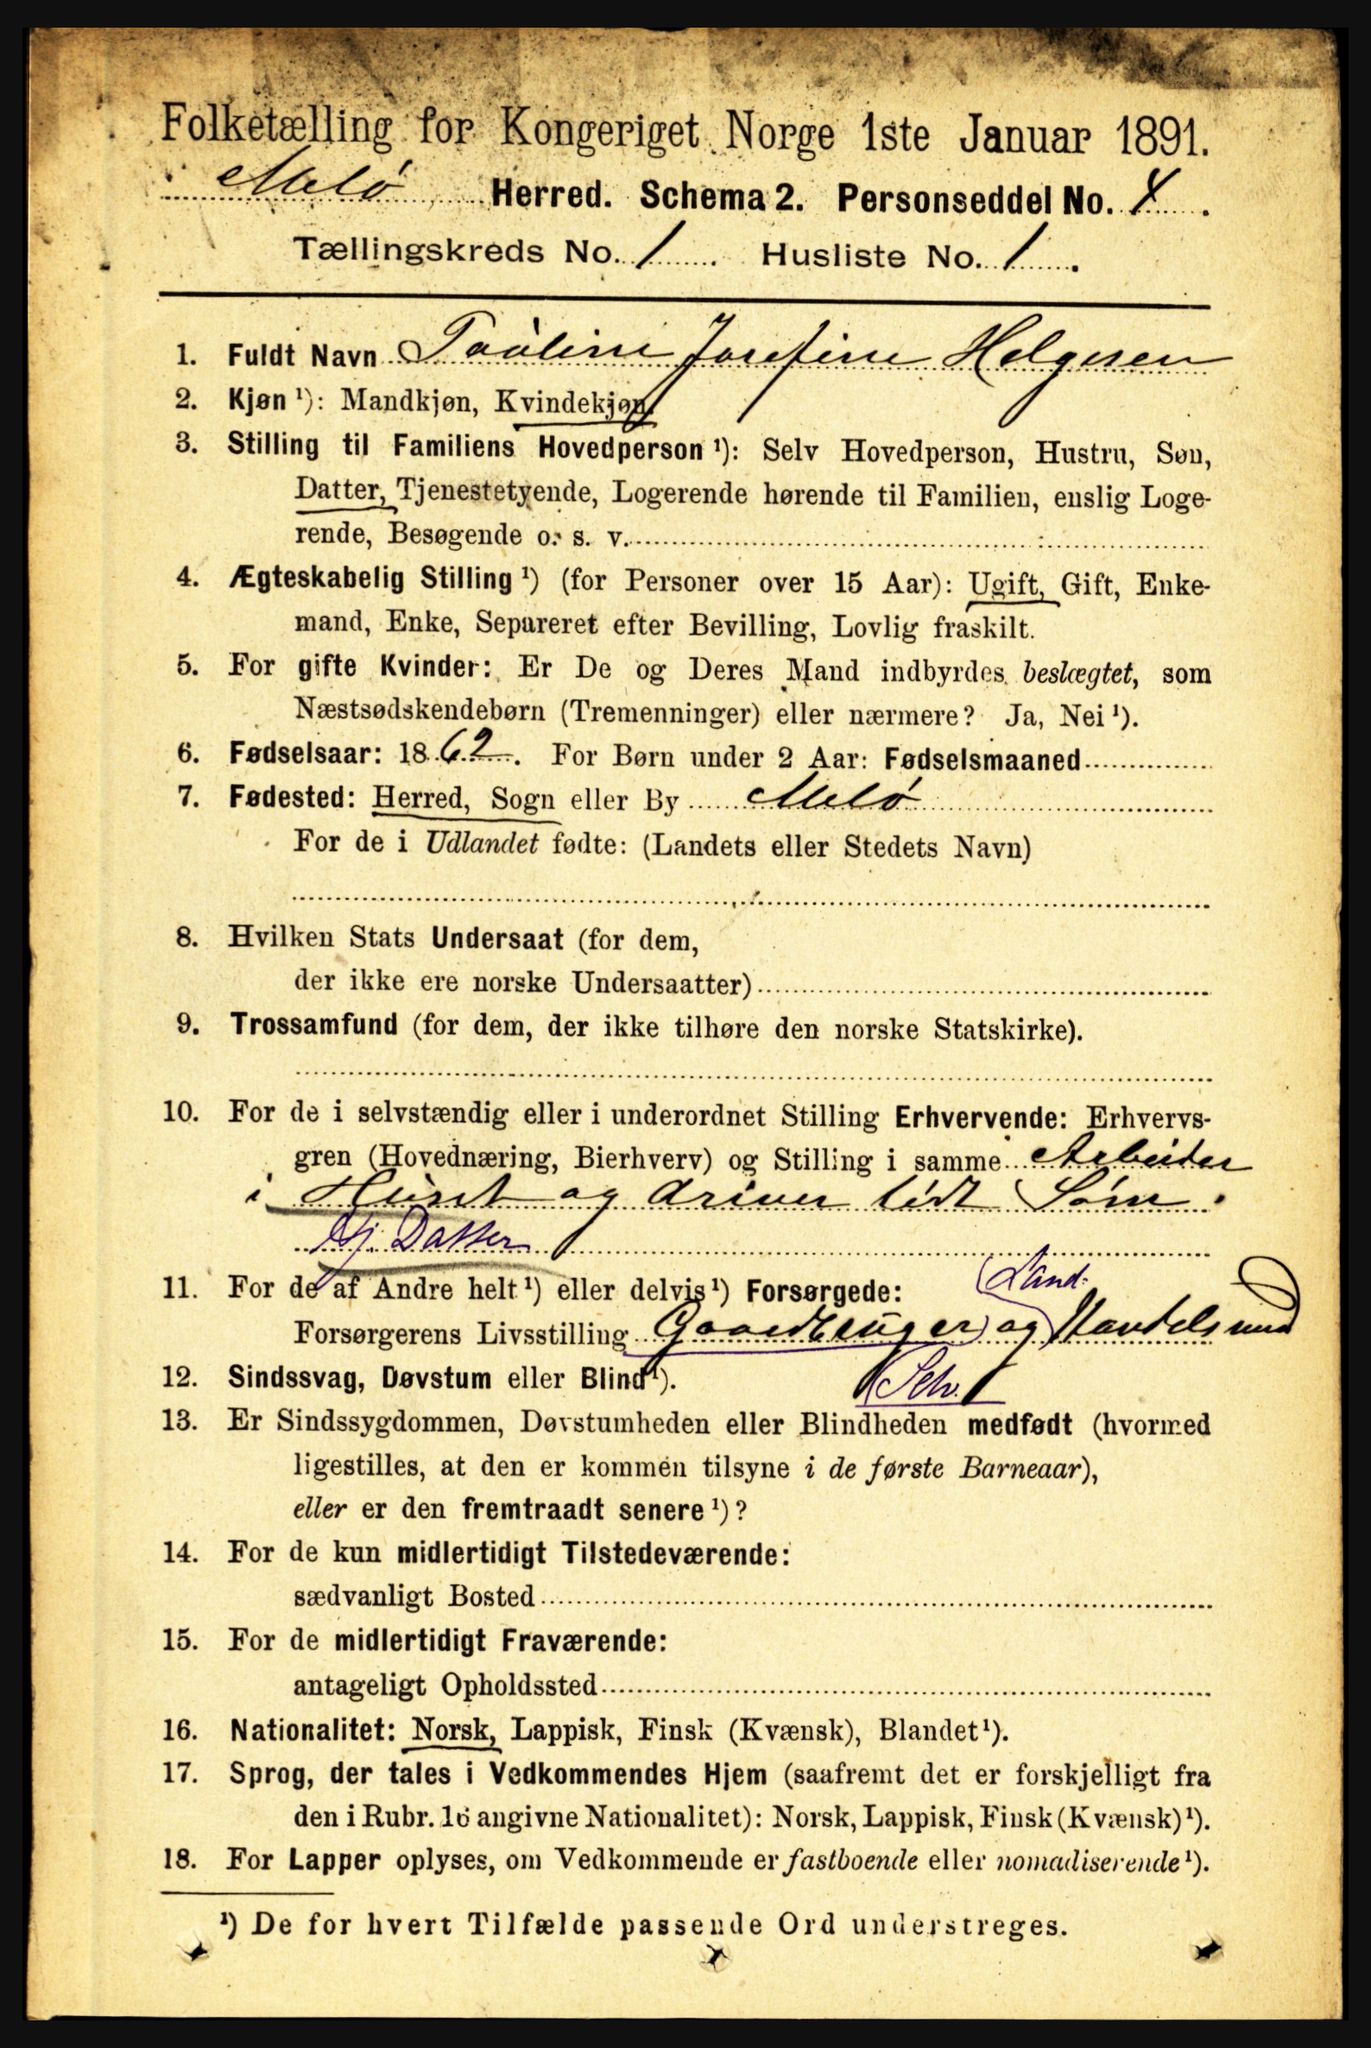 Folketælling for Kongeriget Norge 1ste Januar 1891.
Melø Herred. Schema 2. Personseddel No. 4.
Tællingskreds No. 1. Husliste No. 1.
1. Fuldt Navn Paúline Josefine Helgesen
2. Kjøn ¹): Mandkjøn, Kvindekjøn.
3. Stilling til Familiens Hovedperson ¹): Selv Hovedperson, Hustru, Søn,
Datter, Tjenestetyende, Logerende hørende til Familien, enslig Loge-
rende, Besøgende o. s. v.
4. Ægteskabelig Stilling ¹) (for Personer over 15 Aar): Ugift, Gift, Enke-
mand, Enke, Separeret efter Bevilling, Lovlig fraskilt.
5. For gifte Kvinder: Er De og Deres Mand indbyrdes beslægtet, som
Næstsødskendebørn (Tremenninger) eller nærmere? Ja, Nei ¹).
6. Fødselsaar: 1862. For Børn under 2 Aar: Fødselsmaaned
7. Fødested: Herred, Sogn eller By Melø
For de i Udlandet fødte: (Landets eller Stedets Navn)
8. Hvilken Stats Undersaat (for dem,
der ikke ere norske Undersaatter)
9. Trossamfund (for dem, der ikke tilhøre den norske Statskirke).
10. For de i selvstændig eller i underordnet Stilling Erhvervende: Erhvervs-
gren (Hovednæring, Bierhverv) og Stilling i samme Arbeider
i Húset og driver lidt Søm.
Hj. Datter
11. For de af Andre helt ¹) eller delvis ¹) Forsørgede:
Land.
Forsørgerens Livsstilling Gaardbrúger og Handelsmnd
Selv.
12. Sindssvag, Døvstum eller Blind ¹).
13. Er Sindssygdommen, Døvstumheden eller Blindheden medfødt (hvormed
ligestilles, at den er kommen tilsyne i de første Barneaar),
eller er den fremtraadt senere ¹)?
14. For de kun midlertidigt Tilstedeværende:
sædvanligt Bosted
15. For de midlertidigt Fraværende:
antageligt Opholdssted
16. Nationalitet: Norsk, Lappisk, Finsk (Kvænsk), Blandet ¹).
17. Sprog, der tales i Vedkommendes Hjem (saafremt det er forskjelligt fra
den i Rubr. 16 angivne Nationalitet): Norsk, Lappisk, Finsk (Kvænsk) ¹).
18. For Lapper oplyses, om Vedkommende er fastboende eller nomadiserende ¹).
¹) De for hvert Tilfælde passende Ord understreges.